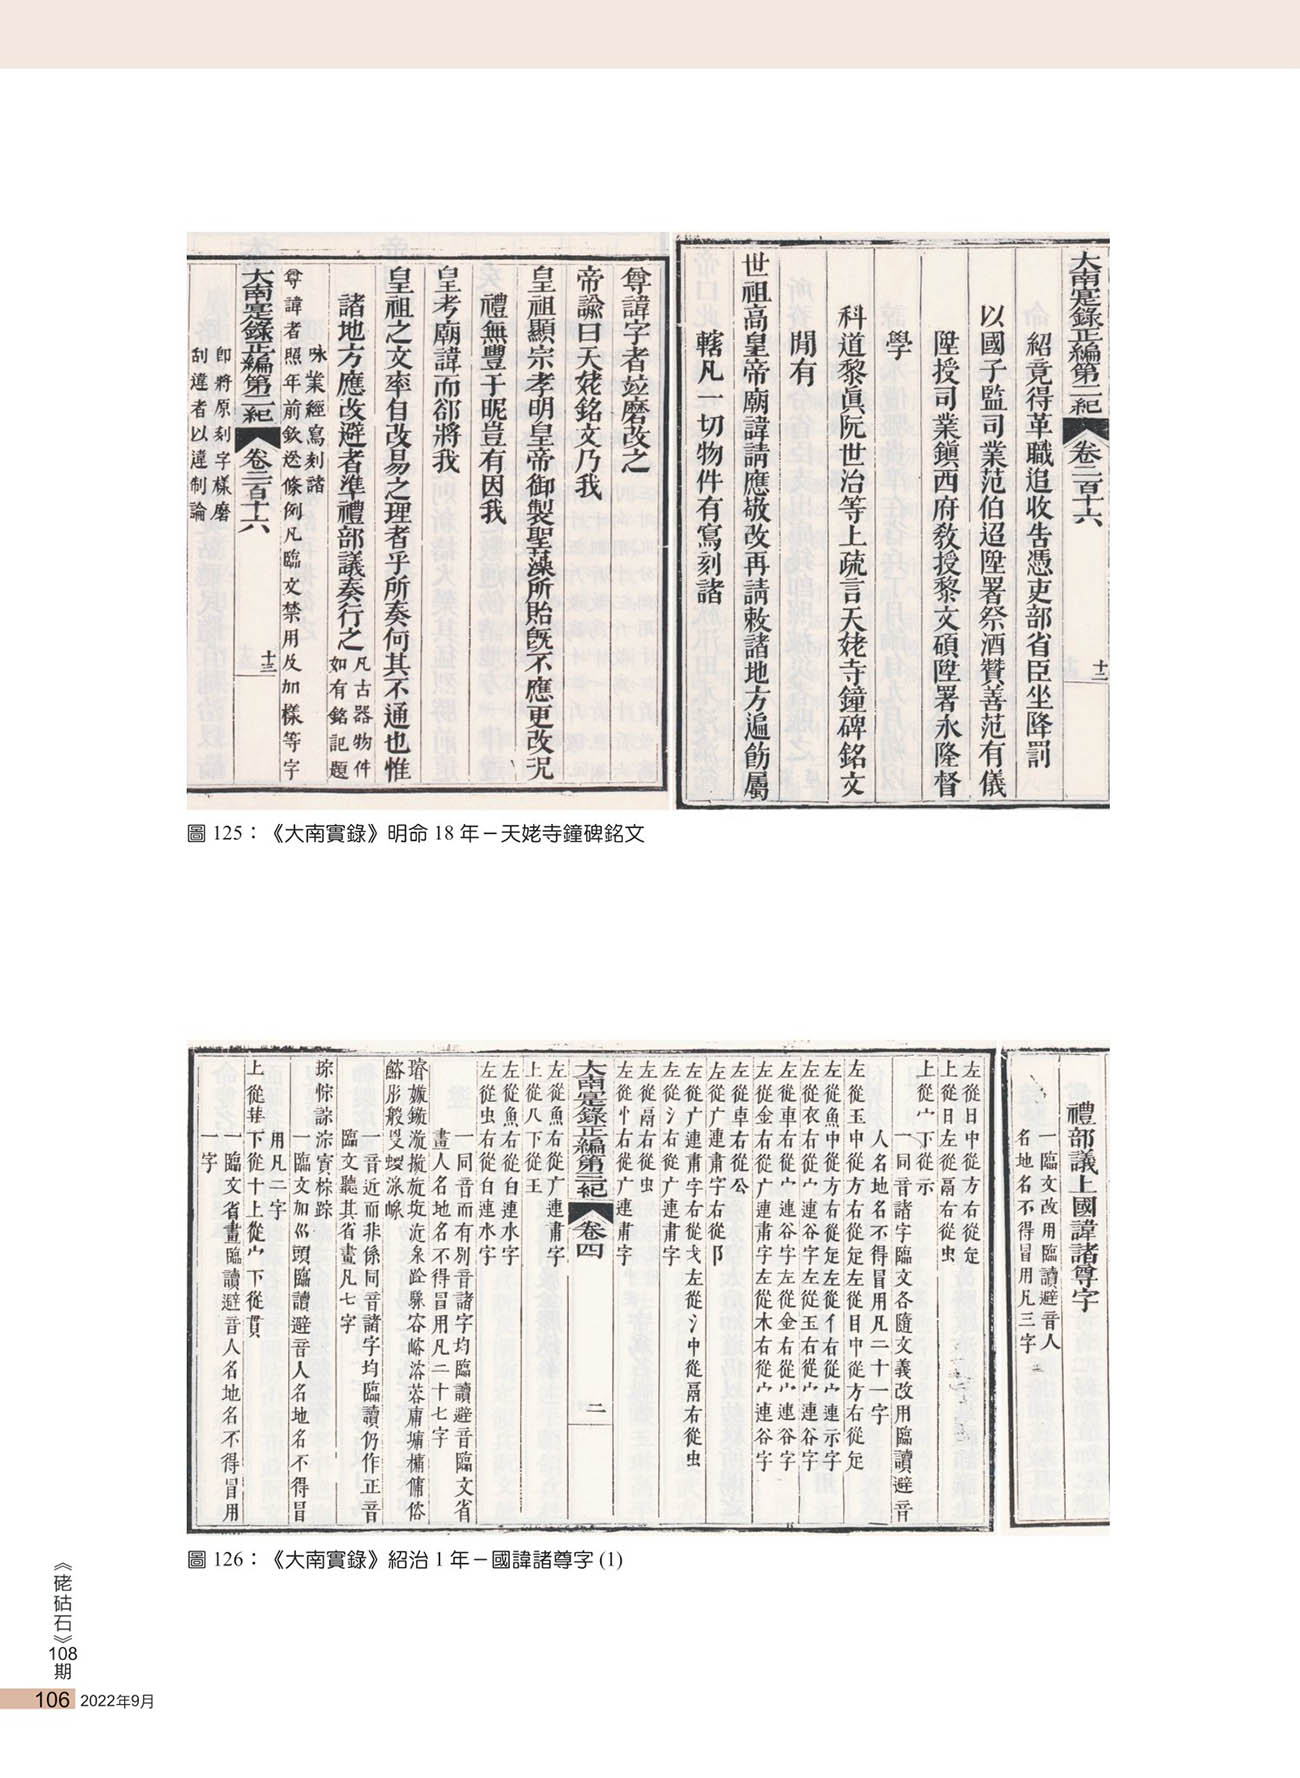 大南寔錄正編第二紀 卷一百十六 十二
紹竟得革職追收告憑吏部省臣坐降罰
以國子監司業范伯迢陞署祭酒贊善范有儀
陞授司業鎭西府敎授黎文碩陞署永隆督
學
科道黎眞阮世治等上疏言天姥寺鐘碑銘文
閒有
世祖高皇帝廟諱請應敬改再請敕諸地方遍飭屬
轄凡一切物件有寫刻諸
尊諱字者竝磨改之
帝諭曰天姥銘文乃我
皇祖顯宗孝明皇帝御製聖藻所貽旣不應更改况
禮無豐于昵豈有因我
皇考廟諱而郤將我
皇祖之文率自改易之理者乎所奏何其不通也惟
諸地方應改避者準禮部議奏行之
凡古器物件
如有銘記題
咏業經寫刻諸
尊諱者照年前欽遞條例凡臨文禁用及加樣等字
大南寔錄正編第二紀 卷一百十六 十三
卽將原刻字樣磨
刮違者以違制論
圖 125：《大南實錄》明命 18 年－天姥寺鐘碑銘文
禮部議上國諱諸尊字
一臨文改用臨讀避音人
名地名不得冒用凡三字
左從日中從方右從定
上從日左從鬲右從虫
上從宀下從示
一同音諸字臨文各隨文義改用臨讀避音
人名地名不得冒用凡二十一字
左從玉中從方右從定左從目中從方右從定
左從魚中從方右從定左從亻右從宀連示字
左從衣右從宀連谷字左從玉右從宀連谷字
左從車右從宀連谷字左從金右從宀連谷字
左從金右從广連肅字左從木右從宀連谷字
左從卓右從公
左從广連肅字右從阝
左從广連肅字右從戈左從氵中從鬲右從虫
左從氵右從广連肅字
左從鬲右從虫
左從忄右從广連肅字
大南寔錄正編第三紀 卷四 二
左從魚右從广連肅字
上從八下從王
左從魚右從白連水字
左從虫右從白連水字
一同音而有別音諸字均臨讀避音臨文省
畫人名地名不得冒用凡二十七字
一音近而非係同音諸字均臨讀仍作正音
臨文聽其省畫凡七字
琮悰誴淙賨棕踪
一臨文加巛頭臨讀避音人名地名不得冒
用凡二字
上從華下從十上從宀下從貫
一臨文省畫臨讀避音人名地名不得冒用
一字
圖 126：《大南實錄》紹治 1 年－國諱諸尊字 (1)
《硓𥑮石》108期
106 2022年9月